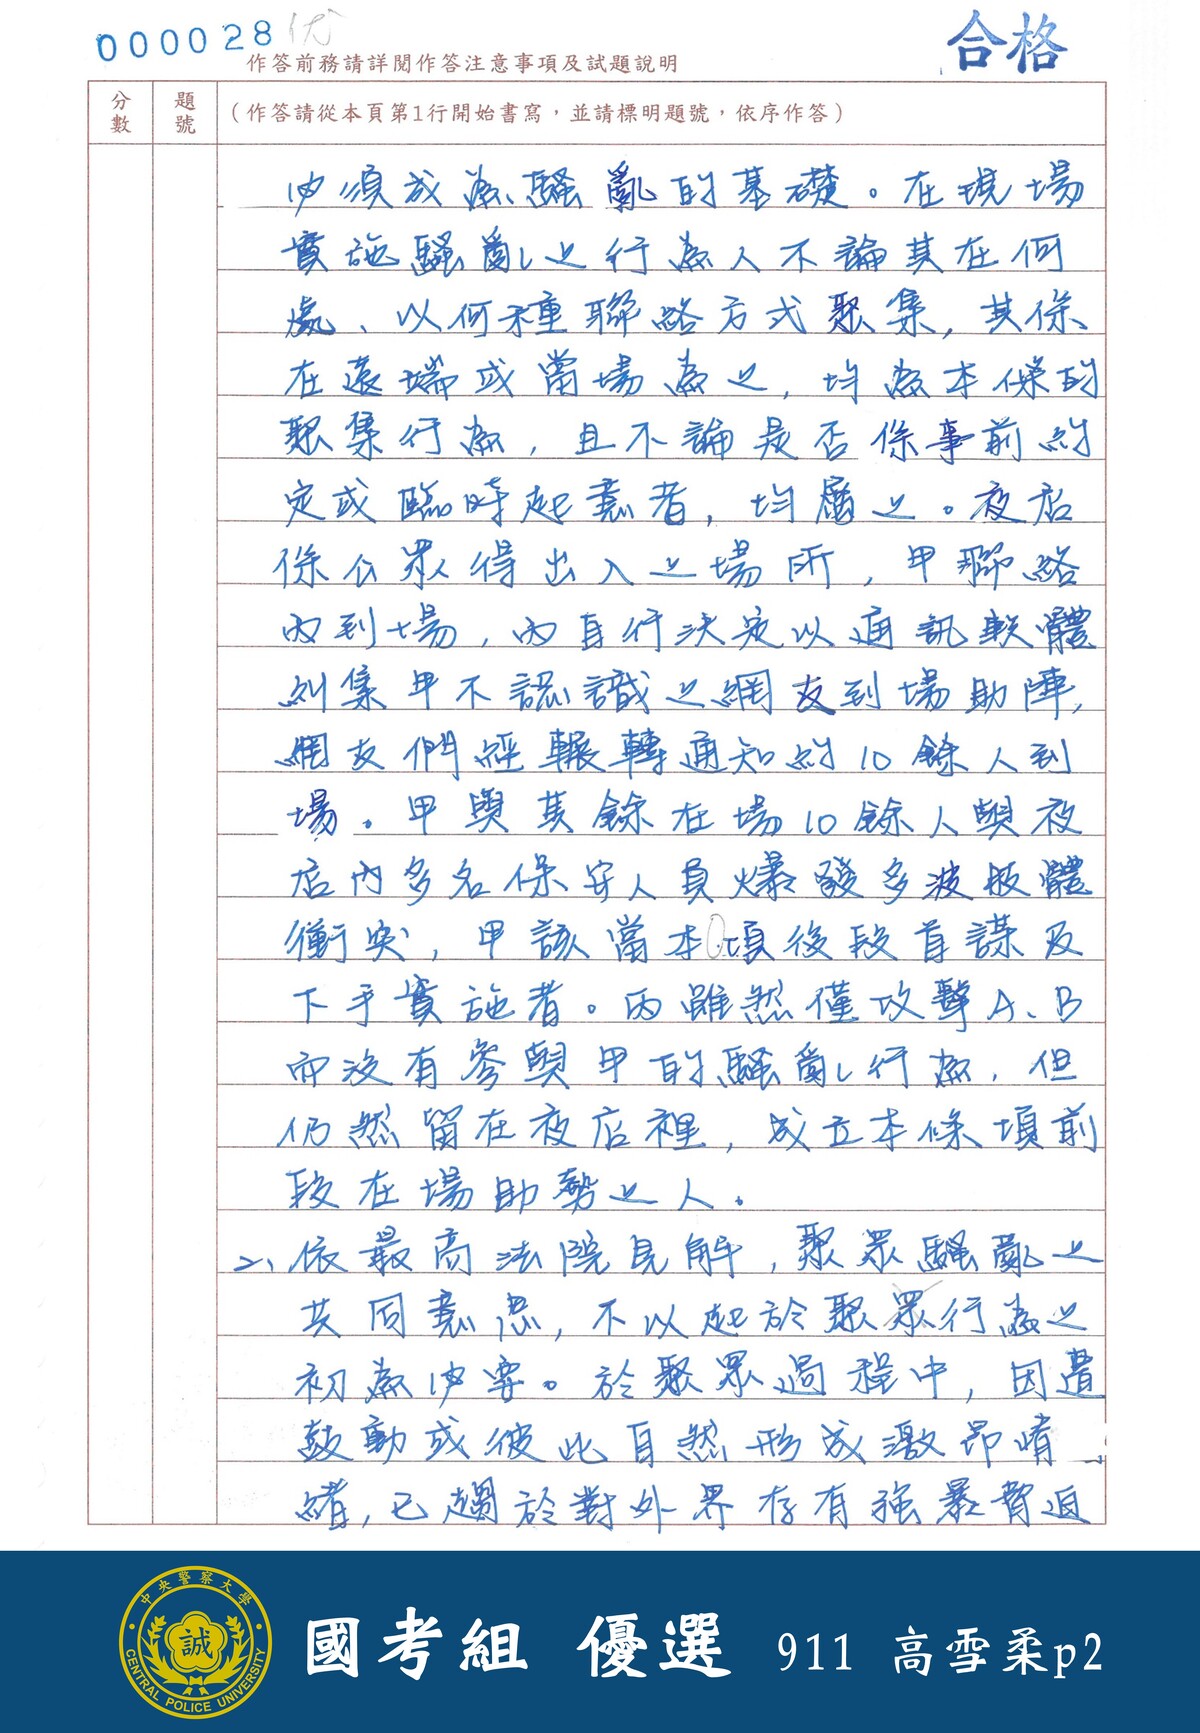 000028 优
合格
作答前務請詳閱作答注意事項及試題說明
分數
題號
（作答請從本頁第1行開始書寫，並請標明題號，依序作答）
必須成為騷亂的基礎。在現場
實施騷亂之行為人不論其在何
處、以何種聯絡方式聚集，其係
在遠端或當場為之，均為本條的
聚集行為，且不論是否係事前約
定或臨時起意者，均屬之。夜店
係公眾得出入之場所，甲聯絡
丙到場，丙自行決定以通訊軟體
糾集甲不認識之網友到場助陣，
網友們經輾轉通知約10餘人到
場。甲與其餘在場10餘人與夜
店內多名保安人員爆發多波肢體
衝突，甲該當本項後段首謀及
下手實施者。丙雖然僅攻擊A、B
而沒有參與甲的騷亂行為，但
仍然留在夜店裡，成立本條項前
段在場助勢之人。
二、依最高法院見解，聚眾騷亂之
共同意思，不以起於聚眾行為之
初為必要。於聚眾過程中，因遭
鼓動或彼此自然形成激昂情
緒，已趨於對外界存有強暴脅迫
中央警察大學
誠
CENTRAL POLICE UNIVERSITY
國考組 優選 911 高雪柔p2